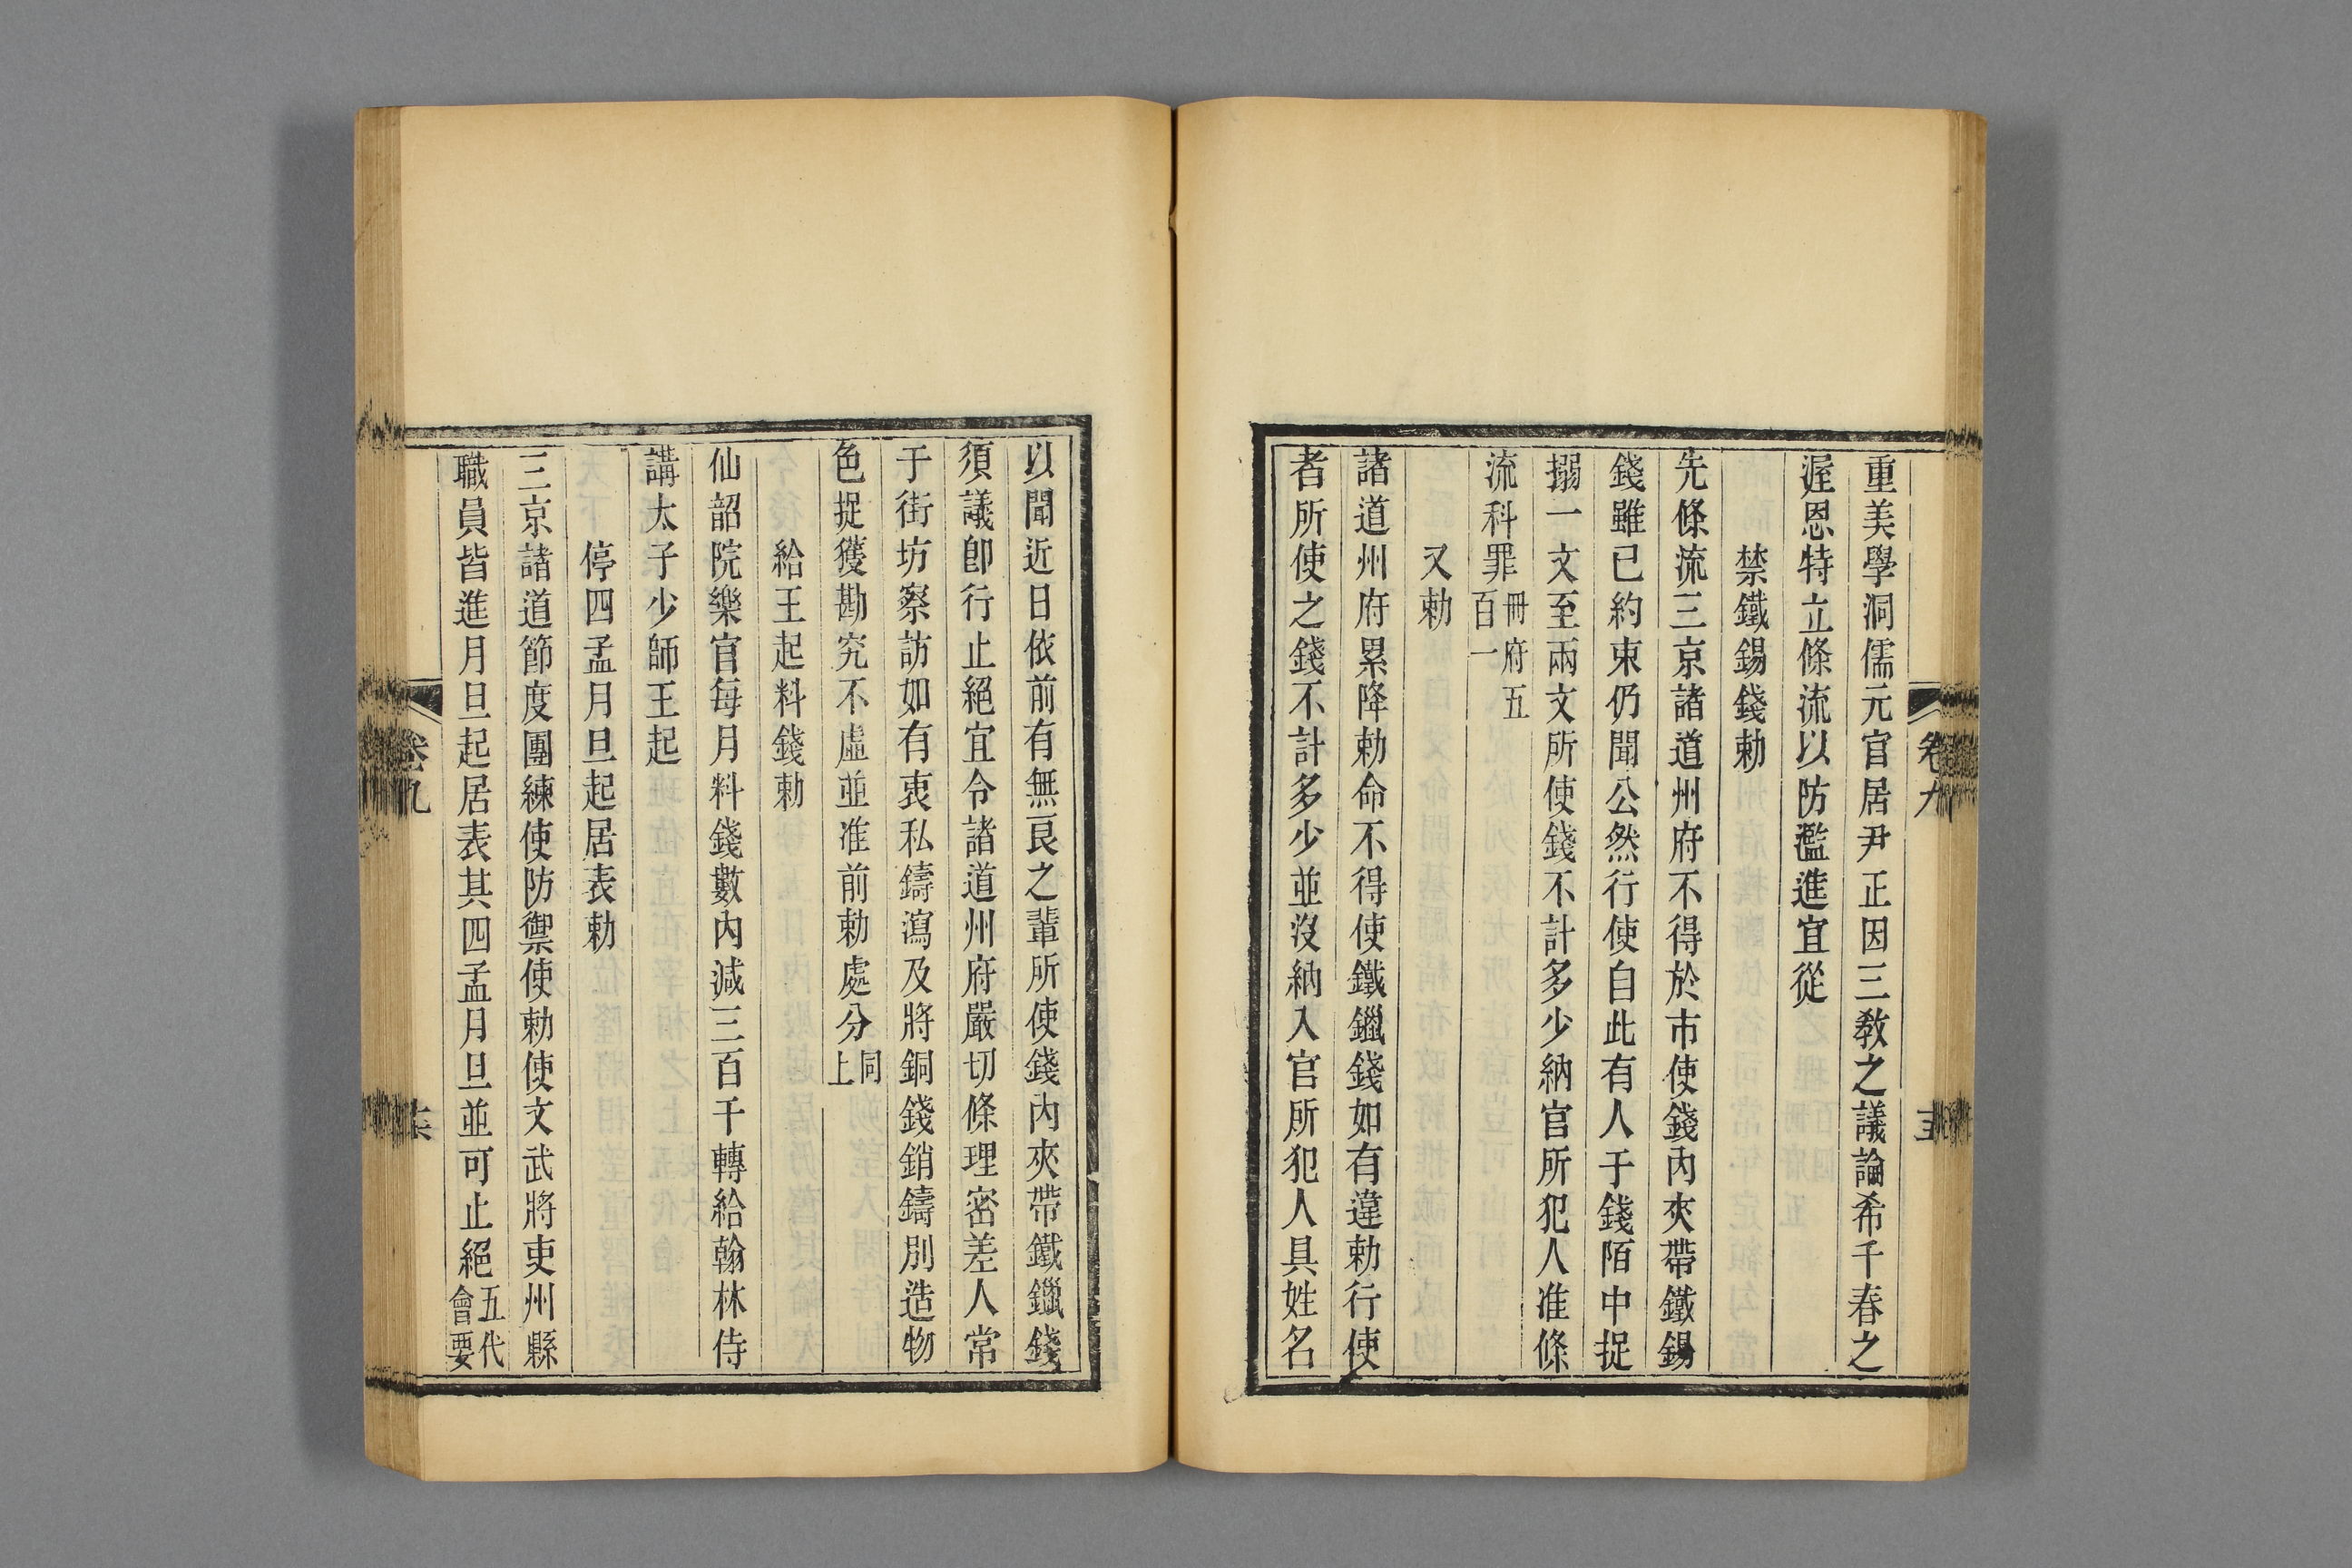 重美學洞儒元官居尹正因三敎之議論希千春之
渥恩特立條流以防濫進宜從
禁鐵錫錢勅
先條流三京諸道州府不得於市使錢內夾帶鐵錫
錢雖已約束仍聞公然行使自此有人于錢陌中捉
搦一文至兩文所使錢不計多少納官所犯人准條
流科罪冊府五百一
又勅
諸道州府累降勅命不得使鐵鑞錢如有違勅行使
者所使之錢不計多少並沒納入官所犯人具姓名
以聞近日依前有無良之輩所使錢內夾帶鐵鑞錢
須議卽行止絕宜令諸道州府嚴切條理密差人常
于街坊察訪如有衷私鑄瀉及將銅錢銷鑄別造物
色捉獲勘究不虛並准前勅處分同上
給王起料錢勅
仙韶院樂官每月料錢數內減三百千轉給翰林侍
講太子少師王起
停四孟月旦起居表勅
三京諸道節度團練使防禦使勅使文武將吏州縣
職員皆進月旦起居表其四孟月旦並可止絕五代會要
卷九